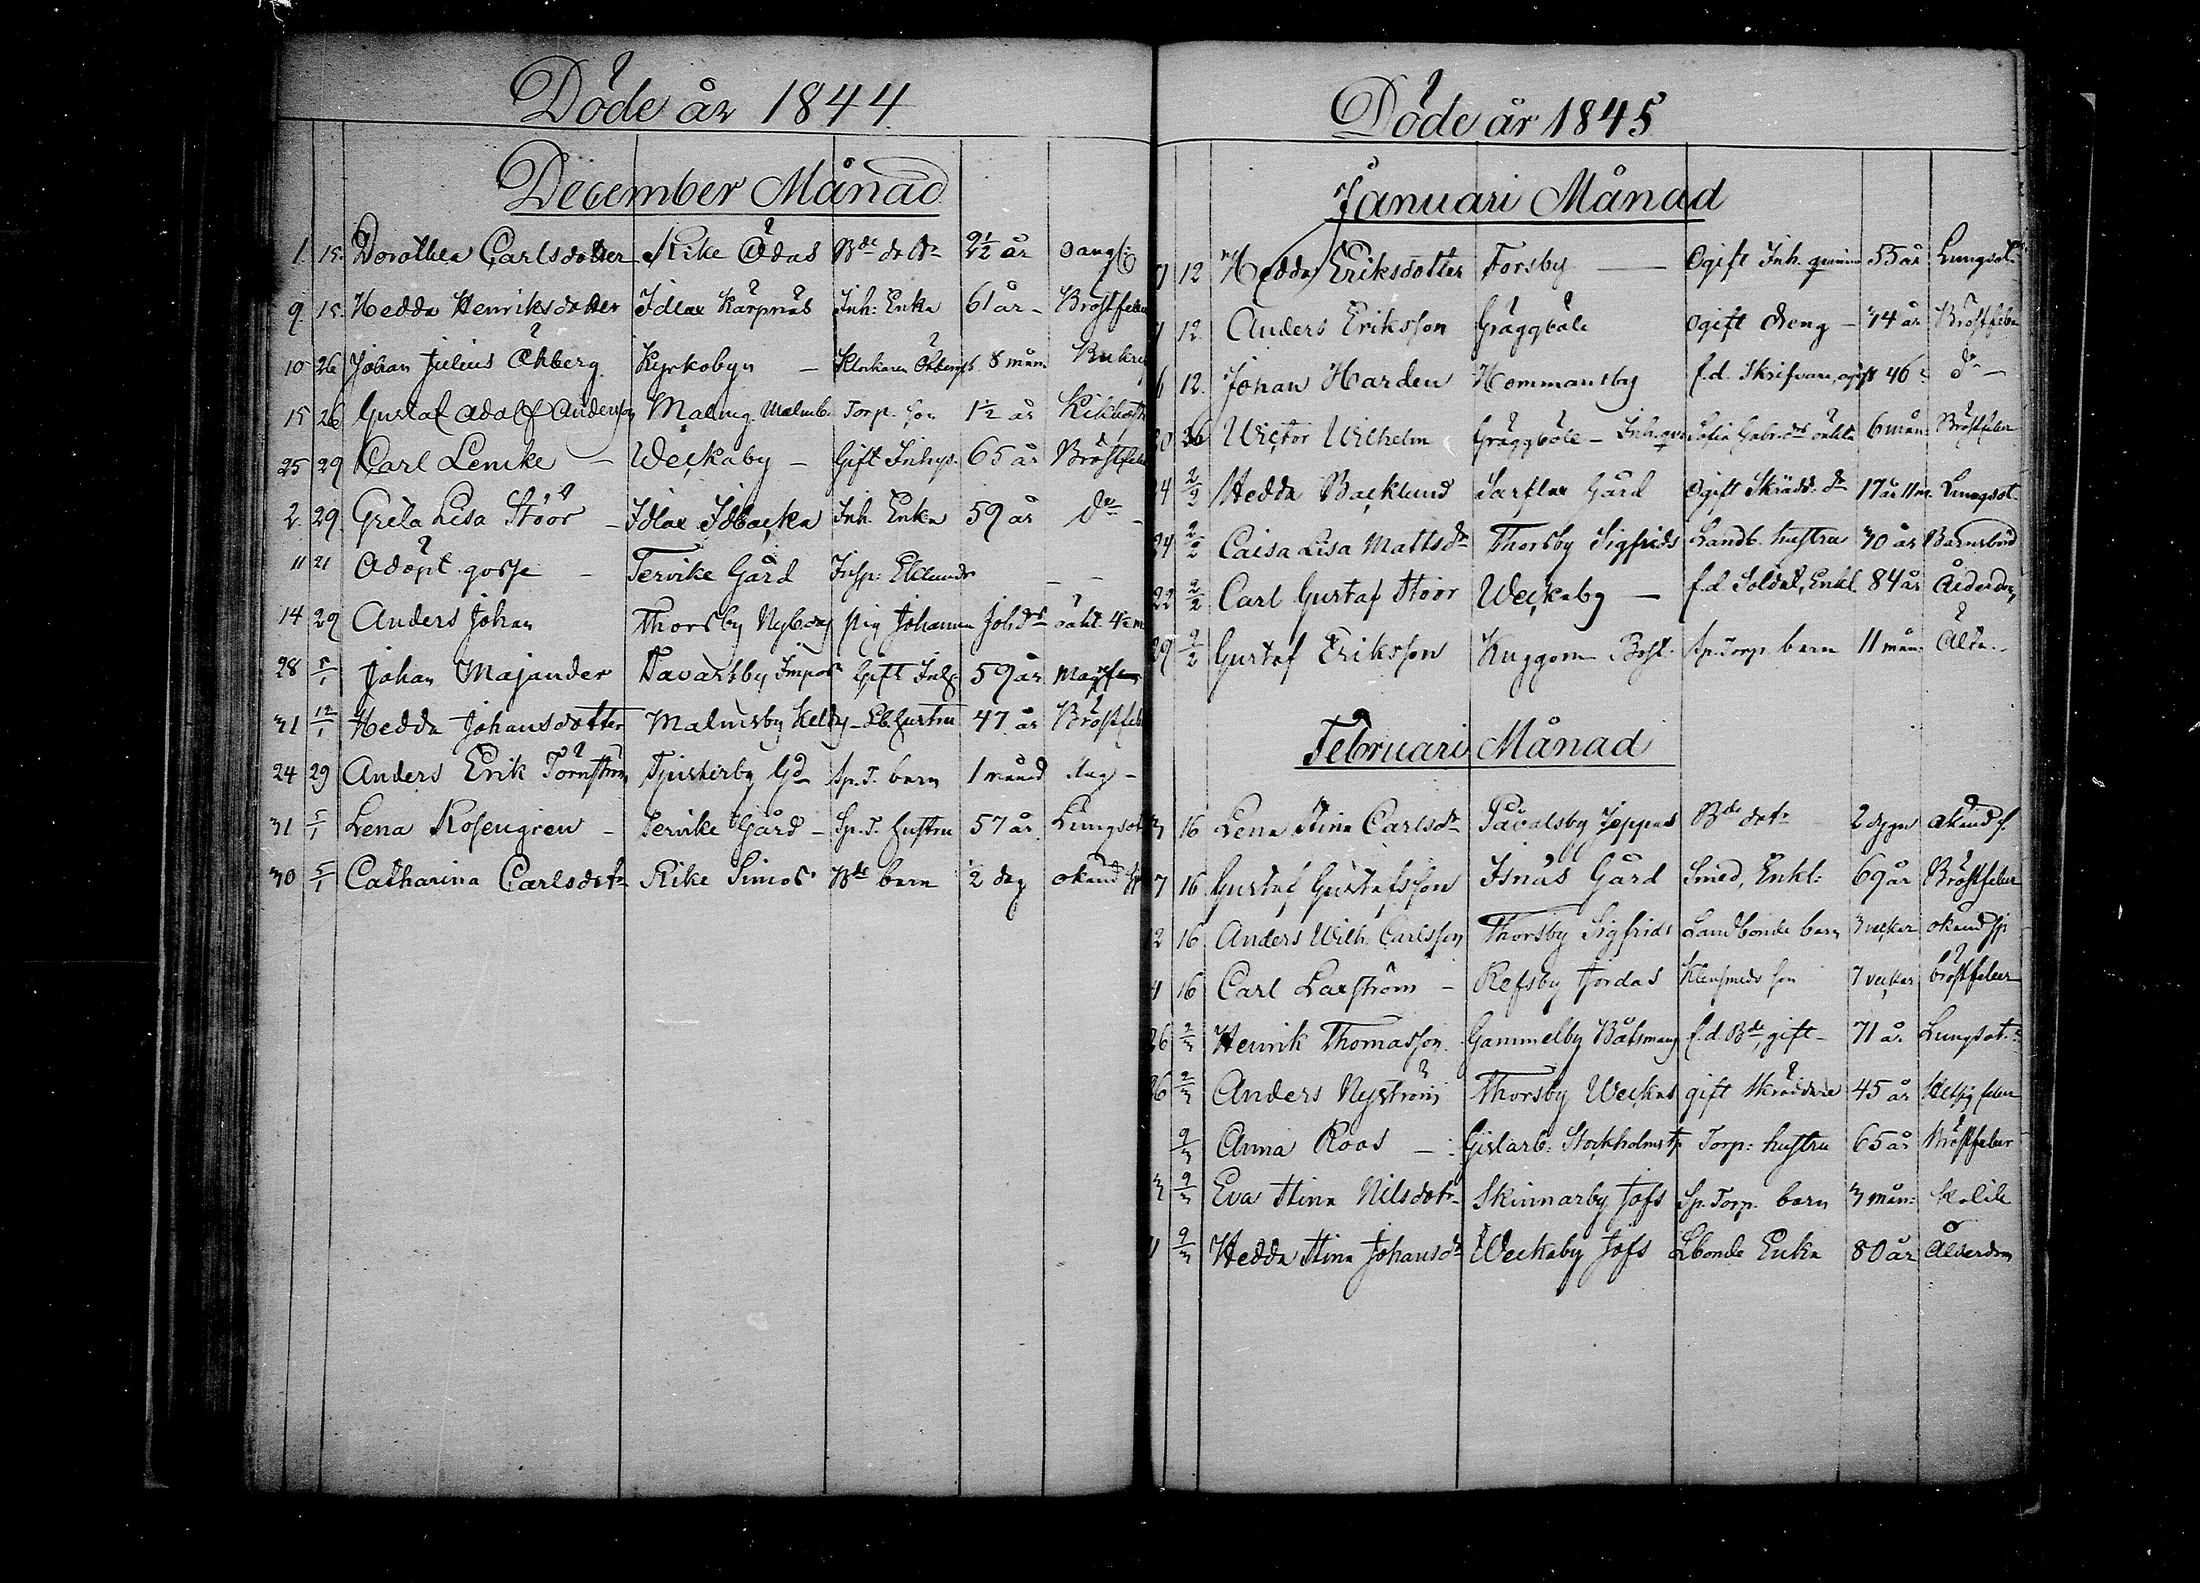 Döde år 1844
December Månad
1. 15. Dorothea Carlsdotter Rike Ödas Bde dotr 2½ år
9. 15. Hedda Henriksdotter Idlax Karpnäs Inh: Enka 61 år - Bröstfeber
10 26 Johan Julius Öhberg Kyrkobyn - Klockaren Öhbergs S. 8 mån.
15 26 Gustaf Adolf Andersson Malmg. Malmb. Torp. son 1½ år Kikhosta
25 29 Carl Lemke - Weckaby - Gift Inhys. 65 år Bröstfeb
2 29 Greta Lisa Stöör - Idlax Idbacka Inh. Enka 59 år Do -
11 21 Odöpt gosse - Tervike Gård Insp: Eklunds - -
14 29 Anders Johan Thorsby Nyborg pig Johanna Johsdr oäkt.
28 5/1 Johan Majander Tavastby Gift Inh 59 år
31 12/1 Hedda Johansdotter Malmsby - Lb. hustru 47 år Bröstfeb
24 29 Anders Erik Törnström Tjusterby Gd Sp. T. barn 1 månad Slag -
31 5/1 Lena Rosengren - Tervike Gård - Sp. T. hustru 57 år Lungsot
30 5/1 Catharina Carlsdotr Rike Simos Bde barn 2 dag okänd
Döde år 1845
Januari Månad
12 Hedda Eriksdotter Forsby - Ogift Inh. qvinna 55 år Lungsot
12. Anders Eriksson Gräggböle ogift dreng - 34 år Bröstfeber
6 12. Johan Harden Hommansby f.d. Skrifvare, ogift 46 do -
20 26 Victor Wilhelm Gräggböle - Inh. qv. Sofia Gabr.dr oäkta 6 mån: Bröstfeber
24 2/2 Hedda Backlund Sarflax Gård Ogift Skrädd. dr 17 år 11 m. Lungsot
24 2/2 Caisa Lisa Mattsdr Thorsby Sigfrids Landb. hustru 30 år Barnsbörd
22 2/2 Carl Gustaf Stöör Weckaby - f.d. Soldat, Enkl. 84 år Ålderdom
29 2/2 Gustaf Eriksson Kuggom Sp. Torp. barn 11 mån:
Februari Månad
3 16 Lena Stina Carlsdr Påvalsby Jeppas Bde dotr 2 dygn okänd s.
7 16 Gustaf Gustafsson Isnäs Gård Smed, Enkl: 69 år Bröstfeber
2 16 Anders Wilh. Carlsson Thorsby Sigfrids Landbonde barn 3 veckor okänd sj
16 Carl Laxström - Refsby Jordas Klensmeds son 7 veckor bröstfeber
26 2/3 Henrik Thomasson Gammelby Båtsmans f.d. Bde, gift - 71 år Lungsot
26 2/3 Anders Nyström Thorsby Weckas gift Skräddare 45 år Hetsig feber
9/3 Anna Roos - Gislarb: Stockholmstp Torp: hustru 65 år Bröstfeber
3 9/3 Eva Stina Nilsdotr Skinnarby Jofs Sp. Torp. barn 3 mån: Kolik
9/3 Hedda Stina Johansdr Weckaby Jofs Lbonde Enka 80 år Ålderdom